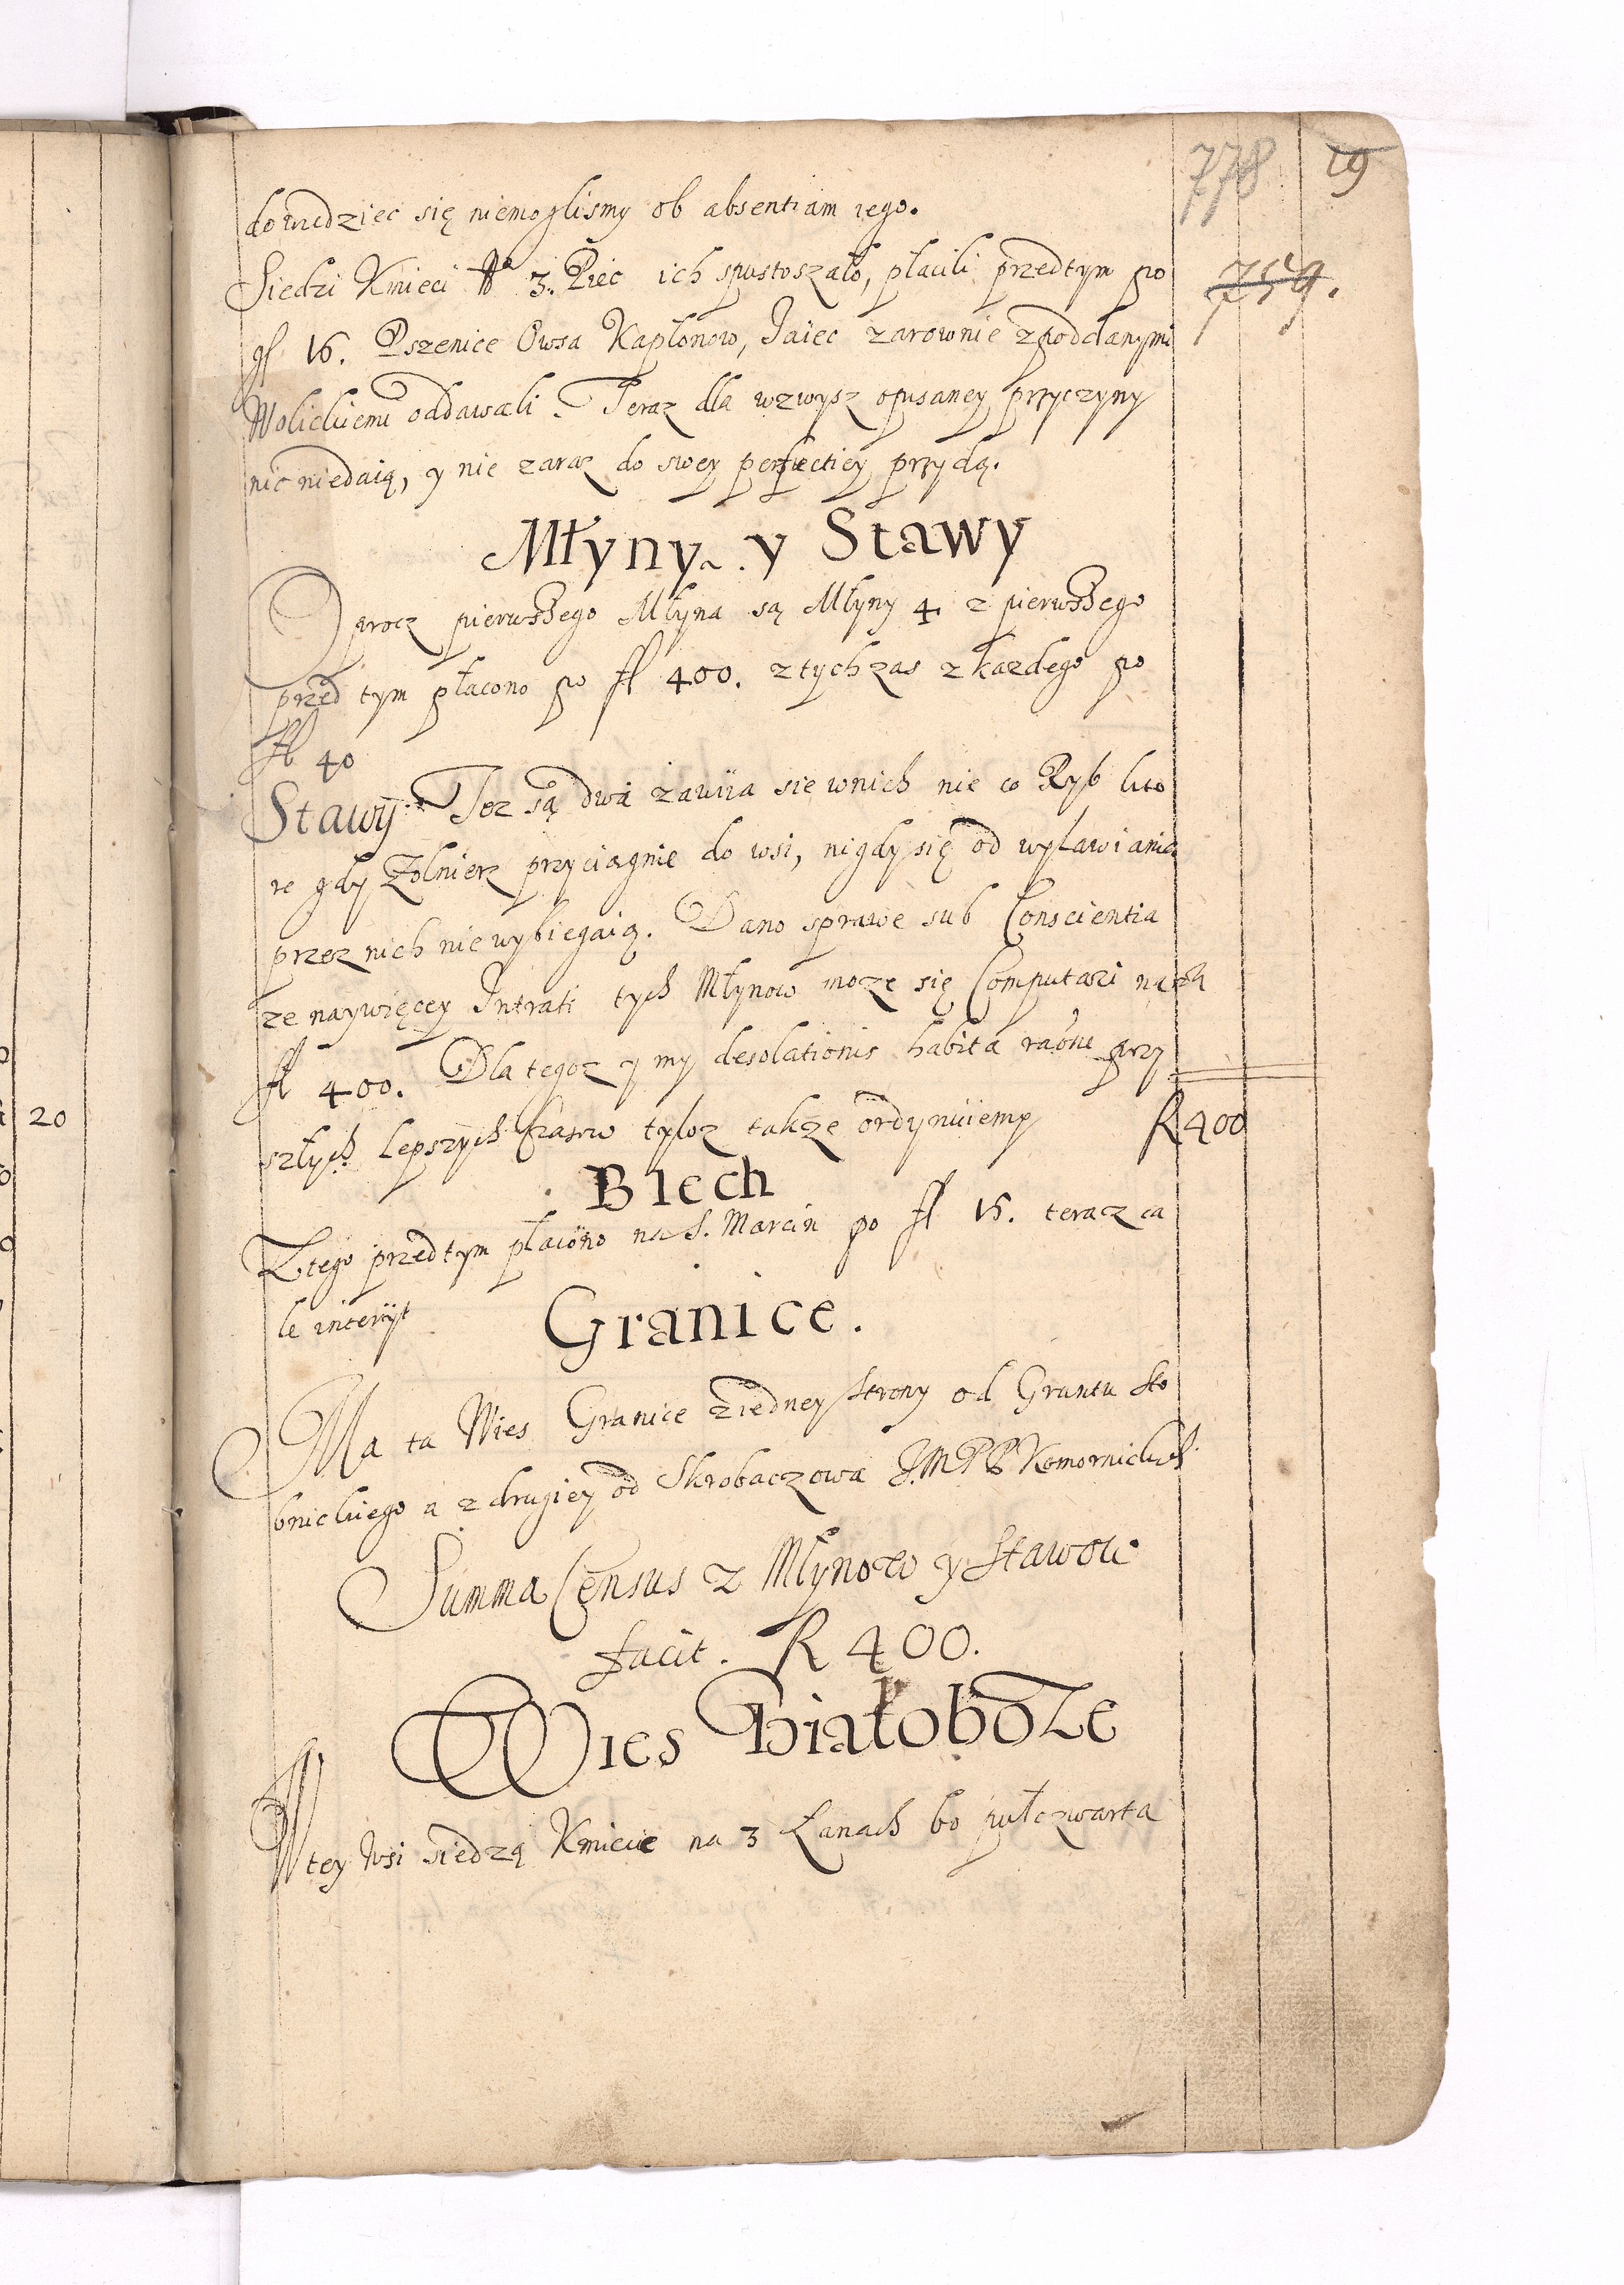 778 19
759.
dowiedziec się niemoglismy ob absentiam iego.
Siedzi Kmieci No 3. Piec ich spustoszało, płacili przedtym po
fl 16. Pszenice Owsa Kapłonow, Jaiec zarownie zpoddanymi
Wolickiemi oddawali. Teraz dla wzwysz opisaney przyczyny
nic niedaią, y nie zaraz do swey perfectiey przydą.
Młyny y Stawy
Oprocz pierwszego Młyna są Młyny 4 z pierwszego
przed tym płacono po fl 400. z tych zas z kazdego po
fl 40
Stawy Tez są dwa zawiia sie wnich nie co Ryb kto
re gdy Zołnierz przyciagnie do wsi, nigdy się od wyławiania
przez nich nie wybiegaią. Dano sprawe sub Conscientia
ze naywięcey Intrati tych Młynow moze się Computari na rok
fl 400. Dla tegoz y my desolationis habita raõne przy
szłych lepszych czasow tyloz takze ordynuiemy R 400
Blech
Z tego przedtym płacono na S. Marcin po fl 15. teraz ca
le interiit
Granice.
Ma ta Wies Granice z iedney strony od Gruntu Sto
bnickiego a z drugiey od Skrobaczowa J.M.P.P. Komornickich
Summa Census z Młynow y Stawow
facit. R 400.
Wies Białoboze
W tey wsi siedzą Kmiecie na 3 Łanach bo pułczwarta
20